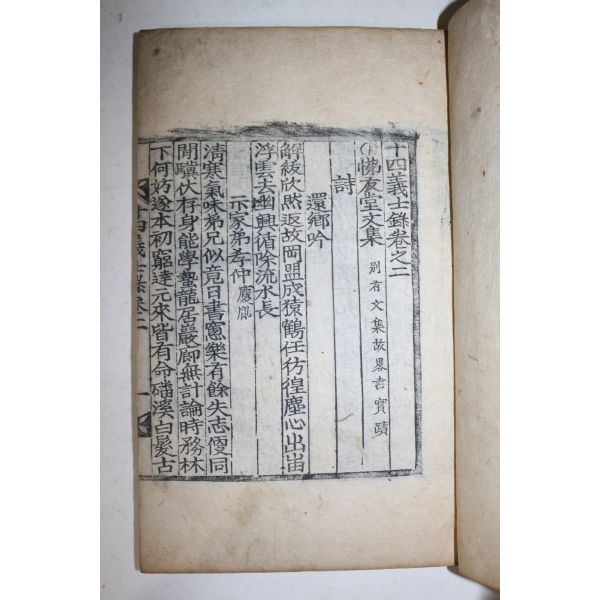 十四義士錄卷之二
佛友堂文集 別有文集故畧書實蹟
詩
還鄉吟
解紱欣然返故岡盟成猿鶴任彷徨塵心出岫
浮雲去幽興循除流水長
示家弟孝仲慶胤
清寒氣味弟兄似竟日書窓樂有餘失志便同
閒驥伏存身能學蟄龍居巖廊無計論時務林
下何妨遂本初窮達元來皆有命磻溪白髮古
十四義士錄卷二 一